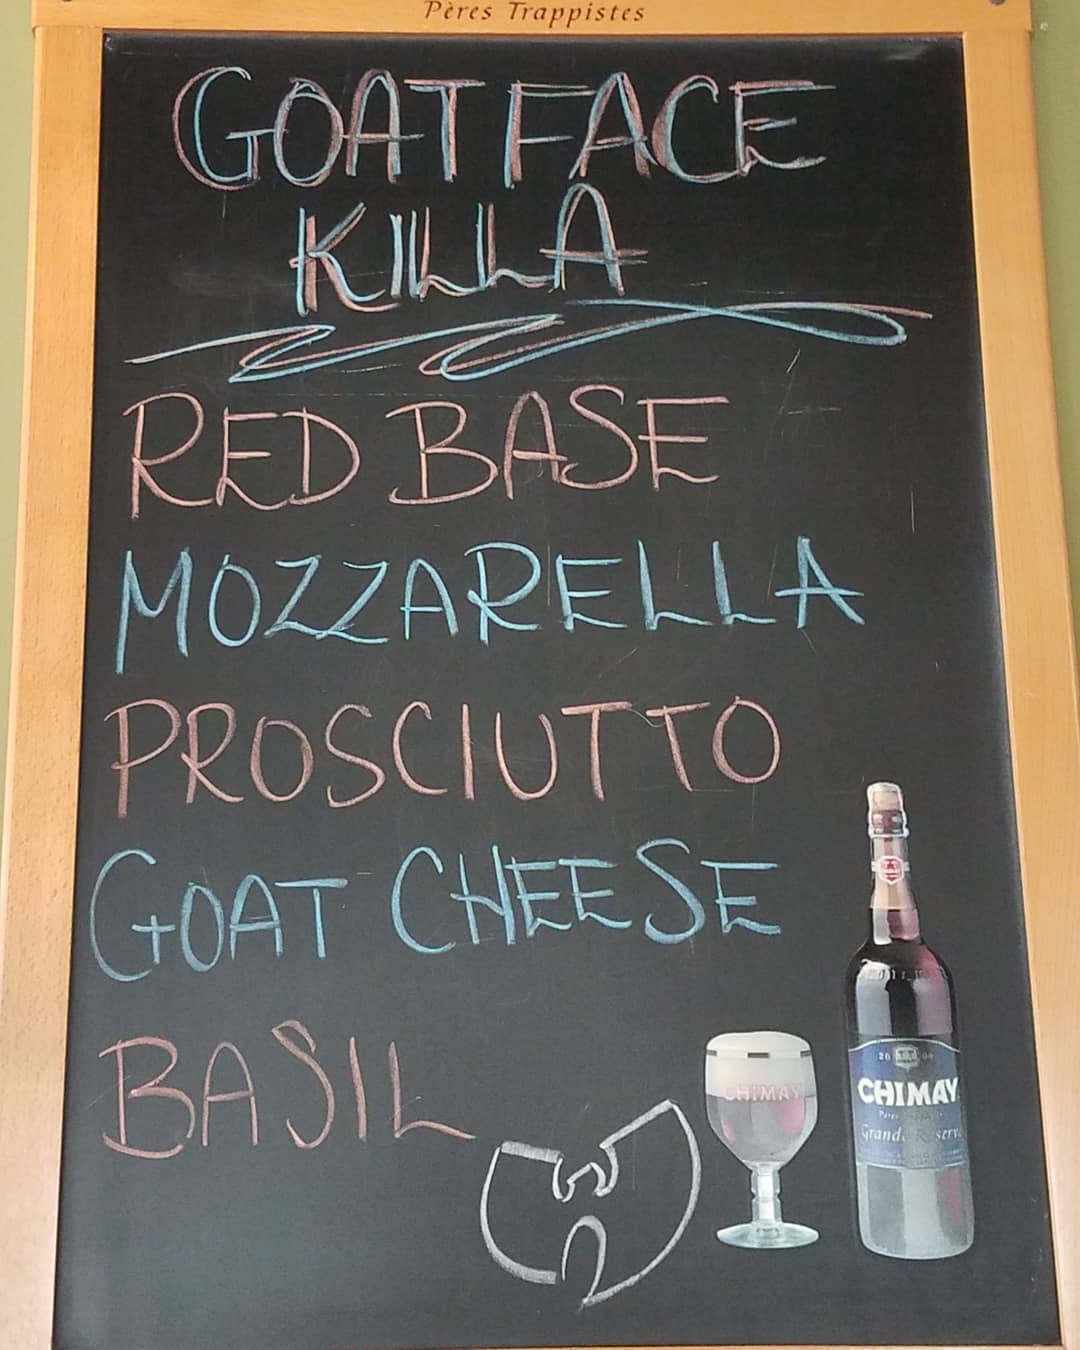 Pères Trappistes
GOATFACE
KILLA
RED BASE
MOZZARELLA
PROSCIUTTO
GOAT CHEESE
BASIL
CHIMAY
CHIMAY
Grande Réserve